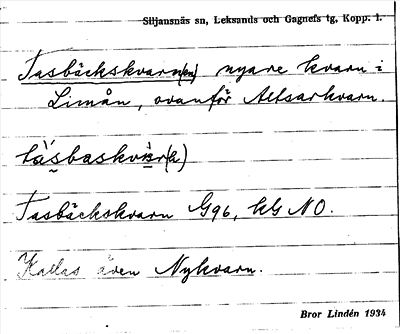 Siljansnäs sn, Leksands och Gagnefs tg, Kopp. l.
Tasbäckskvarn(en) nyare kvarn i
Limån, ovanför Altsarkvarn.
Tasbäckskvarn G96, kG NO.
Kallas även Nykvarn.
Bror Lindén 1934